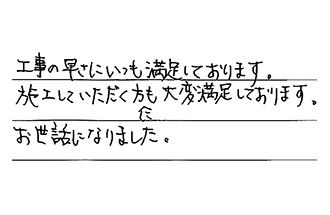 工事の早さにいつも満足しております。
施工していただく方も大変満足しております。
に
お世話になりました。